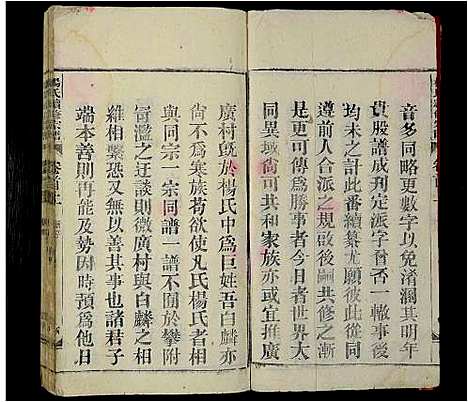 音多同略更數字以免淆澜其明年
貢股譜成刋定派字育否一轍事後
均未之計番續纂尤願彼此共從同
遵前人合派之規訓共修之漸
衍而爲世界大
同異域可共和家族亦或宜推廣
廣村旣於楊氏中爲巨姓吾白麟亦
尙不爲寒族苟欲使凡氏楊氏者相
與同宗一宗同譜一譜不關於攀附
冐濫之迂談則微廣村與白麟之相
維相繫恐又無以善其事也諸君子
端本善則再能及勢因時頼爲他日
楊氏續修宗譜
卷首上